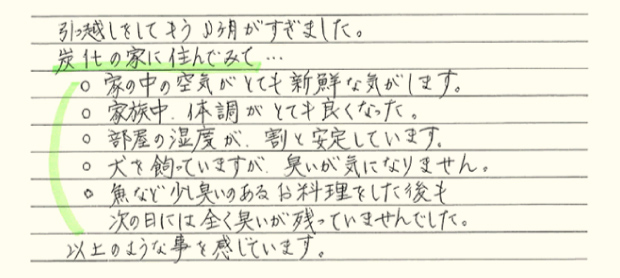 引っ越しをしてもう 4ヶ月がすぎました。
炭化の家に住んでみて…
○ 家の中の空気がとても新鮮な気がします。
○ 家族中、体調がとても良くなった。
○ 部屋の湿度が、割と安定しています。
○ 犬を飼っていますが、臭いが気になりません。
○ 魚など少し臭いのあるお料理をした後も
次の日には全く臭いが残っていませんでした。
以上のような事を感じています。